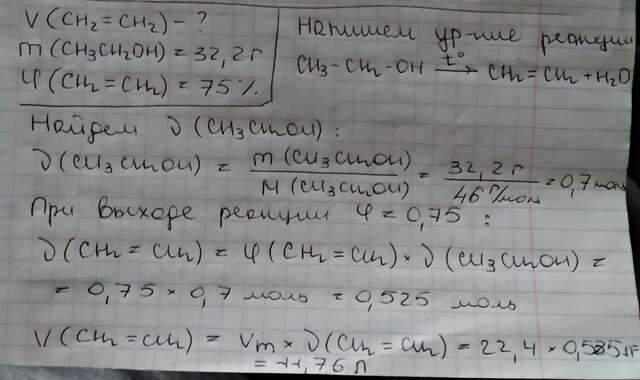 V (CH₂=CH₂) - ?
m (CH₃CH₂OH) = 32,2 г
φ (CH₂=CH₂) = 75 %.
Напишем ур-ние реакции
CH₃-CH₂-OH t° → CH₂=CH₂ + H₂O
Найдем ν (CH₃CH₂OH) :
ν (CH₃CH₂OH) = m (CH₃CH₂OH) / M (CH₃CH₂OH) = 32,2 г / 46 г/мол = 0,7 мол
При выходе реакции φ = 0,75 :
ν (CH₂=CH₂) = φ (CH₂=CH₂) × ν (CH₃CH₂OH) =
= 0,75 × 0,7 моль = 0,525 моль
V (CH₂=CH₂) = Vm × ν (CH₂=CH₂) = 22,4 × 0,525
= 11,76 л